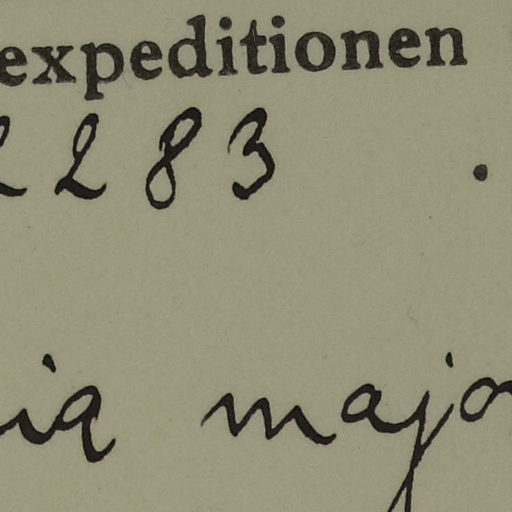 expeditionen
2283 .
ia major